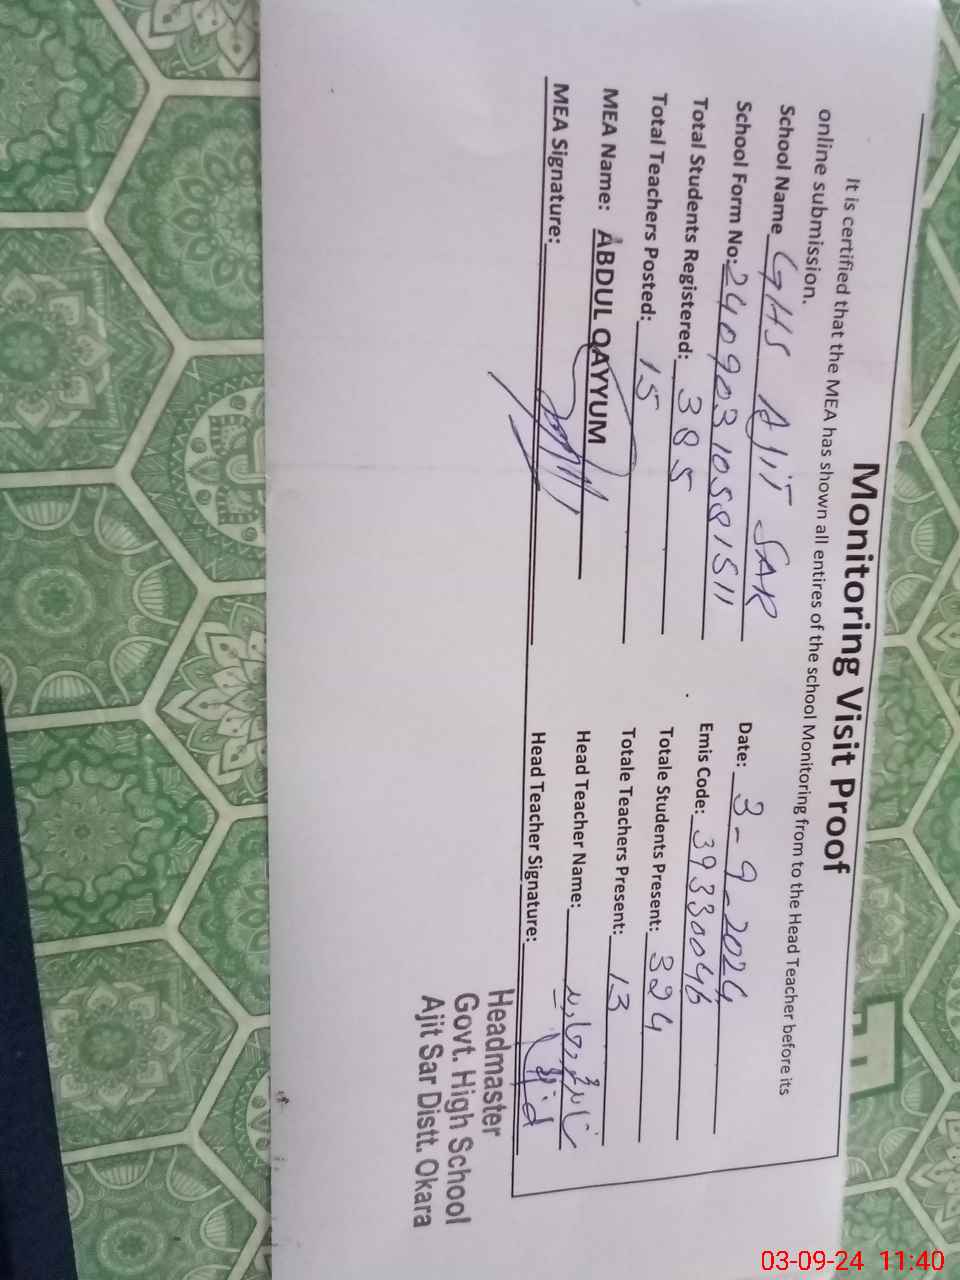 Monitoring Visit Proof
It is certified that the MEA has shown all entires of the school Monitoring from to the Head Teacher before its
online submission.
School Name GHS AJIT SAR
Date: 3-9-2024
School Form No: 24090310581511
Emis Code: 39330046
Total Students Registered: 385
Totale Students Present: 324
Total Teachers Posted: 15
Totale Teachers Present: 13
MEA Name: ABDUL QAYYUM
Head Teacher Name:
MEA Signature:
Head Teacher Signature:
Headmaster
Govt. High School
Ajit Sar Distt. Okara
03-09-24 11:40